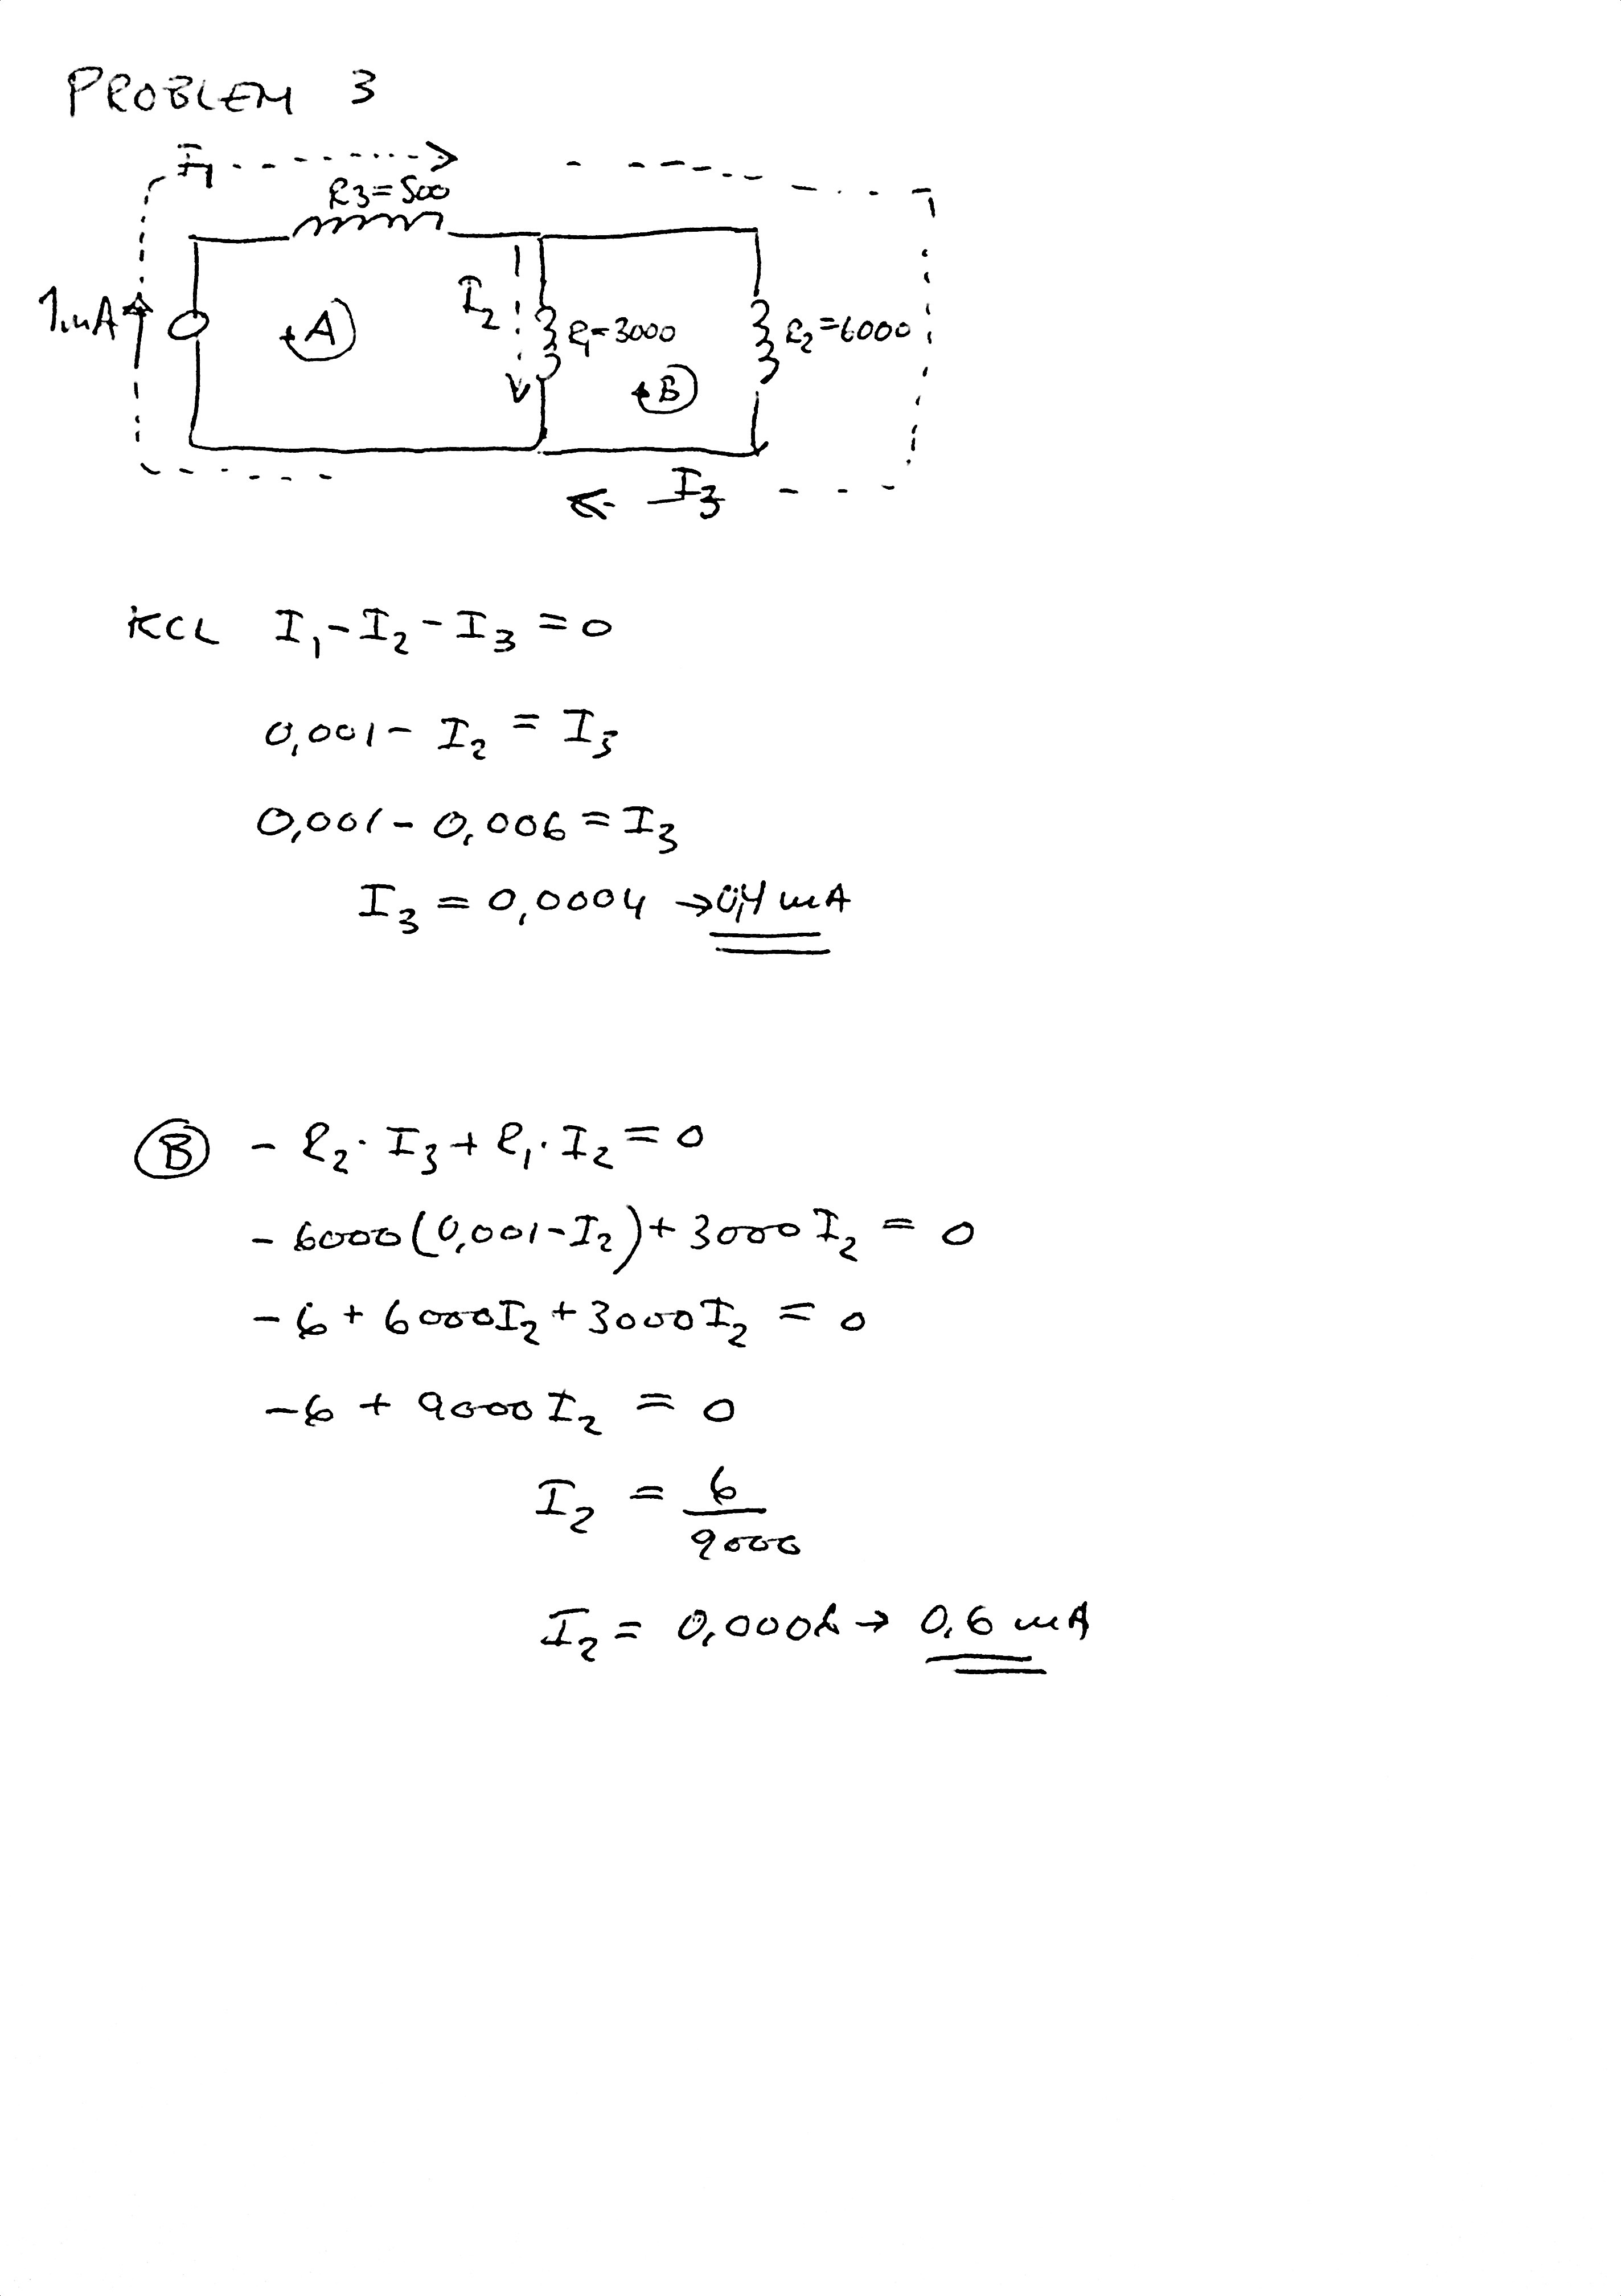 PROBLEM 3
I1
R3=500
1mA
+A
I2
R1=3000
R2=6000
+B
I3
KCL I1-I2-I3=0
0,001- I2 = I3
0,001-0,006=I3
I3=0,0004 →0,4 mA
B - R2· I3+R1·I2=0
-6000(0,001-I2)+3000I2=0
-6+6000I2+3000I2=0
-6+9000I2=0
I2=6
9000
I2= 0,0006→ 0,6 mA